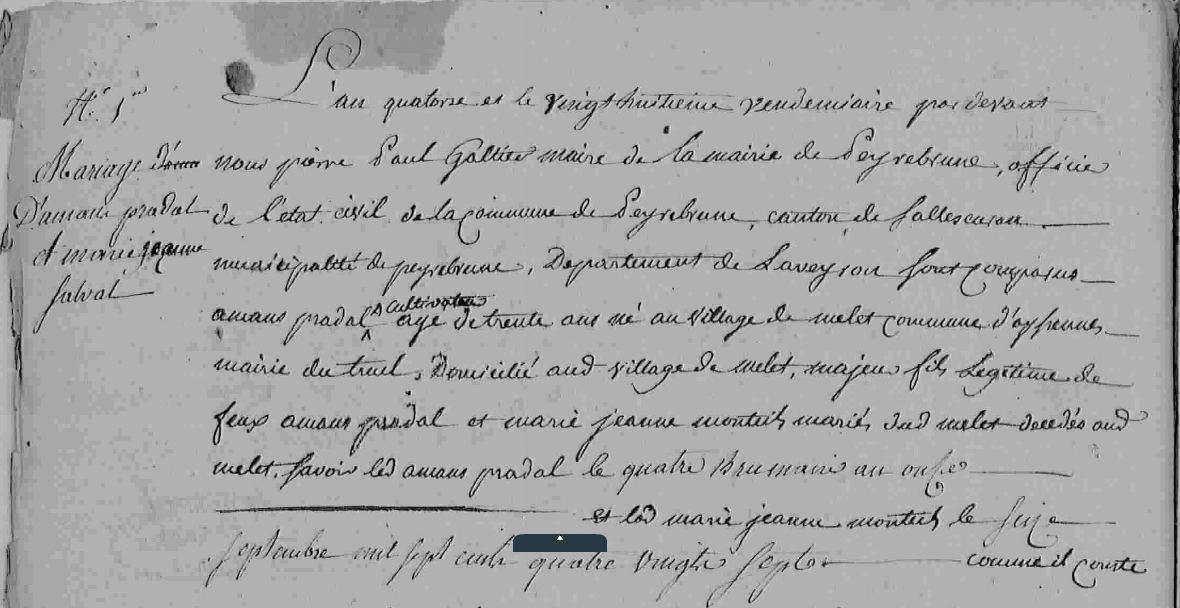 N.° 1er
Mariage
D'amans pradal
et marie jeanne
salvat
L'an quatorse et le vingt huitieme vendemiaire par devant
nous pierre Paul Galtier maire de la mairie de Peyrebrune, officie
de l'etat civil de la commune de Peyrebrune, canton de Sallescuran
municipalité de peyrebrune, Departement de Laveyron sont comparus
amans pradal cultivateur agé de trente ans né au village de melet commune d'ayssennes
mairie du truel, Domicilié aud village de melet, majeur fils Legitime de
feux amans pradal et marie jeanne monteils mariés dud melet decedés aud
melet, savoir led amans pradal le quatre Brumaire an onse
et lad marie jeanne monteils le seize
septembre mil sept cents quatre vingts sept
comme il conste